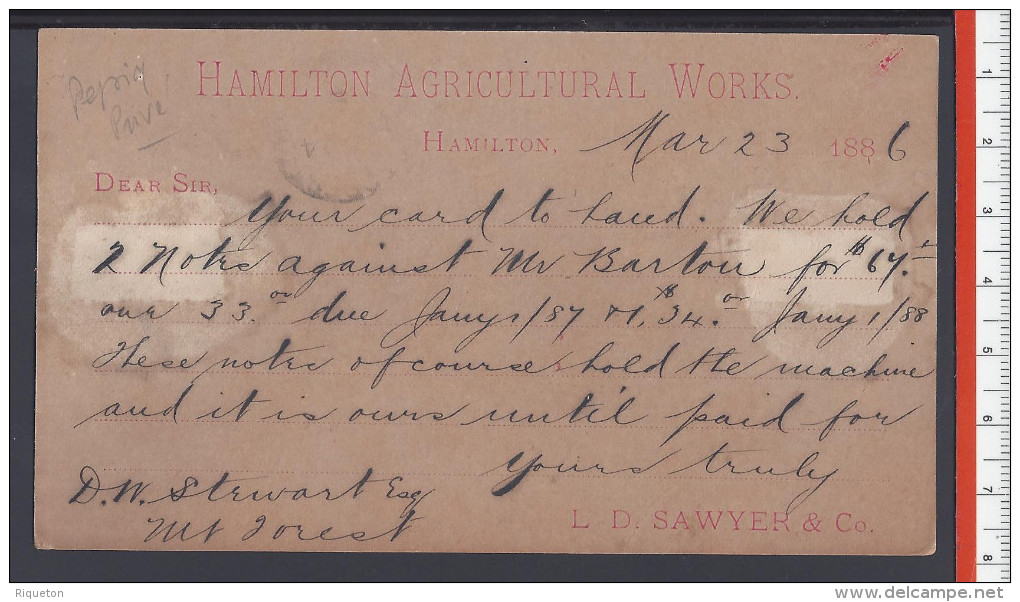 HAMILTON AGRICULTURAL WORKS.
HAMILTON, Mar 23 1886
DEAR SIR,
Your card to hand. We hold
2 Notes against Mr Barton for $67.-
one 33.00 due Jany 1/87 $34.00 Jany 1/88
These notes of course hold the machine
and it is ours until paid for
Yours truly
D. W. Stewart Esq
Mt Forest
L. D. SAWYER & CO.
Privé
1
2
3
4
5
6
7
8
Riqueton
www.delcampe.net